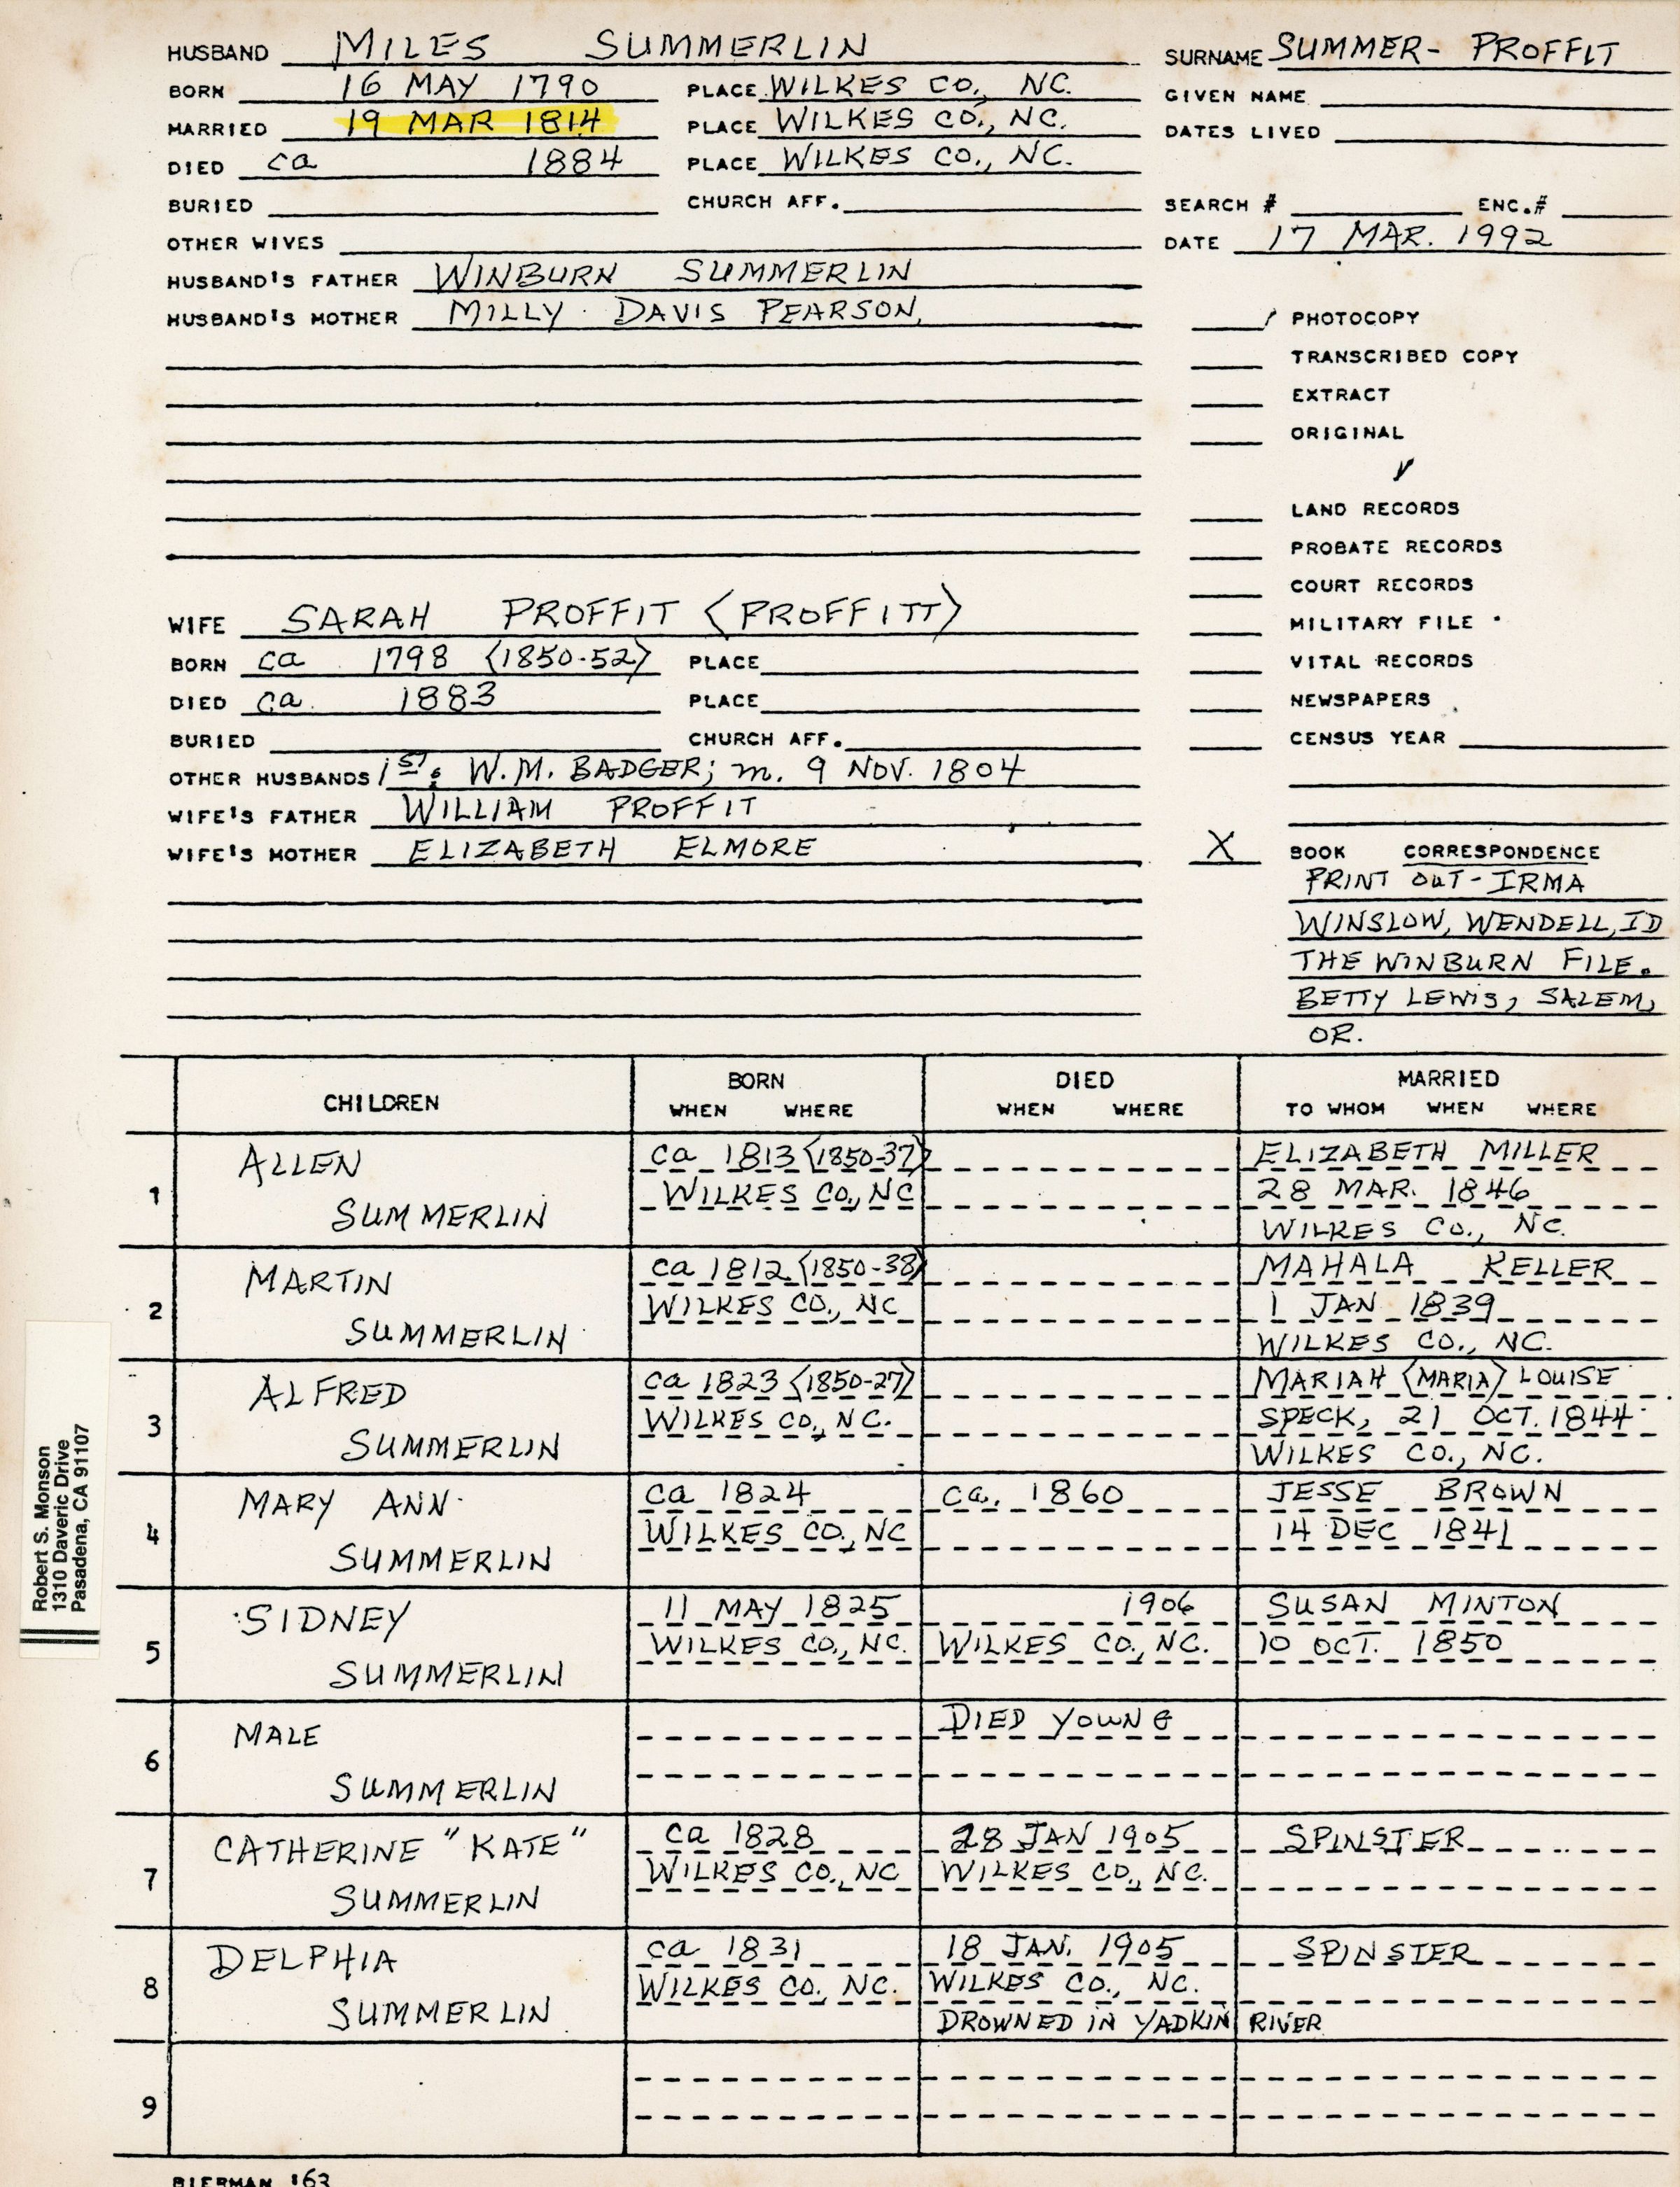 HUSBAND MILES SUMMERLIN
BORN 16 MAY 1790 PLACE WILKES CO., NC.
MARRIED 19 MAR 1814 PLACE WILKES CO., NC.
DIED ca 1884 PLACE WILKES CO., NC.
BURIED CHURCH AFF.
OTHER WIVES
HUSBAND'S FATHER WINBURN SUMMERLIN
HUSBAND'S MOTHER MILLY DAVIS PEARSON
SURNAME SUMMER- PROFFIT
GIVEN NAME
DATES LIVED
SEARCH # ENC.#
DATE 17 MAR. 1992
PHOTOCOPY
TRANSCRIBED COPY
EXTRACT
ORIGINAL
LAND RECORDS
PROBATE RECORDS
COURT RECORDS
MILITARY FILE
VITAL RECORDS
NEWSPAPERS
CENSUS YEAR
X BOOK CORRESPONDENCE
PRINT OUT - IRMA
WINSLOW, WENDELL, ID
THE WINBURN FILE.
BETTY LEWIS, SALEM,
OR.
WIFE SARAH PROFFIT <PROFFITT>
BORN ca 1798 <1850-52> PLACE
DIED ca. 1883 PLACE
BURIED CHURCH AFF.
OTHER HUSBANDS 1ST: W.M. BADGER; m. 9 NOV. 1804
WIFE'S FATHER WILLIAM PROFFIT
WIFE'S MOTHER ELIZABETH ELMORE
CHILDREN
BORN
WHEN WHERE
DIED
WHEN WHERE
MARRIED
TO WHOM WHEN WHERE
1
ALLEN
SUMMERLIN
ca 1813 <1850-37>
WILKES CO., NC
ELIZABETH MILLER
28 MAR. 1846
WILKES CO., NC.
2
MARTIN
SUMMERLIN
ca 1812 <1850-38>
WILKES CO., NC
MAHALA KELLER
1 JAN 1839
WILKES CO., NC.
3
ALFRED
SUMMERLIN
ca 1823 <1850-27>
WILKES CO., NC.
MARIAH <MARIA> LOUISE
SPECK, 21 OCT. 1844
WILKES CO., NC.
4
MARY ANN
SUMMERLIN
ca 1824
WILKES CO., NC
ca. 1860
JESSE BROWN
14 DEC 1841
5
SIDNEY
SUMMERLIN
11 MAY 1825
WILKES CO., NC.
1906
WILKES CO., NC.
SUSAN MINTON
10 OCT. 1850
6
MALE
SUMMERLIN
DIED YOUNG
7
CATHERINE "KATE"
SUMMERLIN
ca 1828
WILKES CO., NC
28 JAN 1905
WILKES CO., NC.
SPINSTER
8
DELPHIA
SUMMERLIN
ca 1831
WILKES CO., NC.
18 JAN. 1905
WILKES CO., NC.
DROWNED IN YADKIN RIVER
SPINSTER
9
BIERMAN '63
Robert S. Monson
1310 Daveric Drive
Pasadena, CA 91107